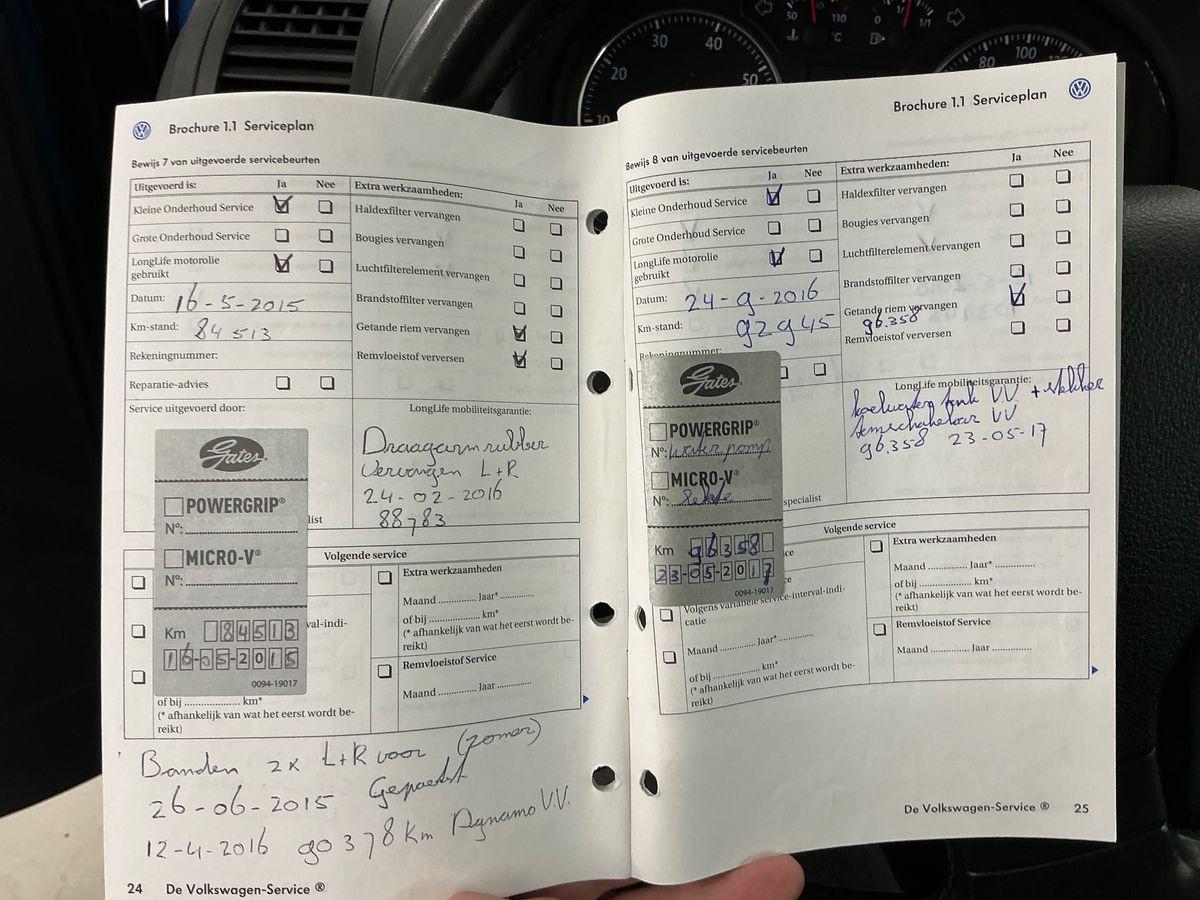 Brochure 1.1 Serviceplan
Bewijs 7 van uitgevoerde servicebeurten
Uitgevoerd is: Ja Nee
Kleine Onderhoud Service
Grote Onderhoud Service
LongLife motorolie
gebruikt
Datum: 16-5-2015
Km-stand: 84513
Rekeningnummer:
Reparatie-advies
Service uitgevoerd door:
Extra werkzaamheden: Ja Nee
Haldexfilter vervangen
Bougies vervangen
Luchtfilterelement vervangen
Brandstoffilter vervangen
Getande riem vervangen
Remvloeistof verversen
LongLife mobiliteitsgarantie:
Draagarmrubber
Vervangen L+R
24-02-2016
88783
Gates
POWERGRIP®
Nº:
MICRO-V®
Nº:
Km 84513
16-05-2015
0094-19017
Volgende service
of bij ........ km*
(* afhankelijk van wat het eerst wordt be-
reikt)
Extra werkzaamheden
Maand ........ Jaar* ........
of bij ........ km*
(* afhankelijk van wat het eerst wordt be-
reikt)
Remvloeistof Service
Maand ........ Jaar ........
Banden 2x L+R voor (zomer)
26-06-2015 Gepaetst
12-4-2016 90378 Km Dynamo V.V.
24 De Volkswagen-Service ®
Brochure 1.1 Serviceplan
Bewijs 8 van uitgevoerde servicebeurten
Uitgevoerd is: Ja Nee
Kleine Onderhoud Service
Grote Onderhoud Service
LongLife motorolie
gebruikt
Datum: 24-9-2016
Km-stand: 92945
Rekeningnummer:
Extra werkzaamheden: Ja Nee
Haldexfilter vervangen
Bougies vervangen
Luchtfilterelement vervangen
Brandstoffilter vervangen
Getande riem vervangen
96.358
Remvloeistof verversen
LongLife mobiliteitsgarantie:
koelwater tank VV + stekker
VV
96.358 23-05-17
Gates
POWERGRIP®
Nº: Waterpomp
MICRO-V®
Nº:
Km 96358
23-05-2017
0094-19017
specialist
Volgende service
Volgens variabele service-interval-indi-
catie
Maand ........ Jaar* ........
of bij ........ km*
(* afhankelijk van wat het eerst wordt be-
reikt)
Extra werkzaamheden
Maand ........ Jaar* ........
of bij ........ km*
(* afhankelijk van wat het eerst wordt be-
reikt)
Remvloeistof Service
Maand ........ Jaar ........
De Volkswagen-Service ® 25
10 20 30 40 50
50 130 °C
0 1/1
80 100